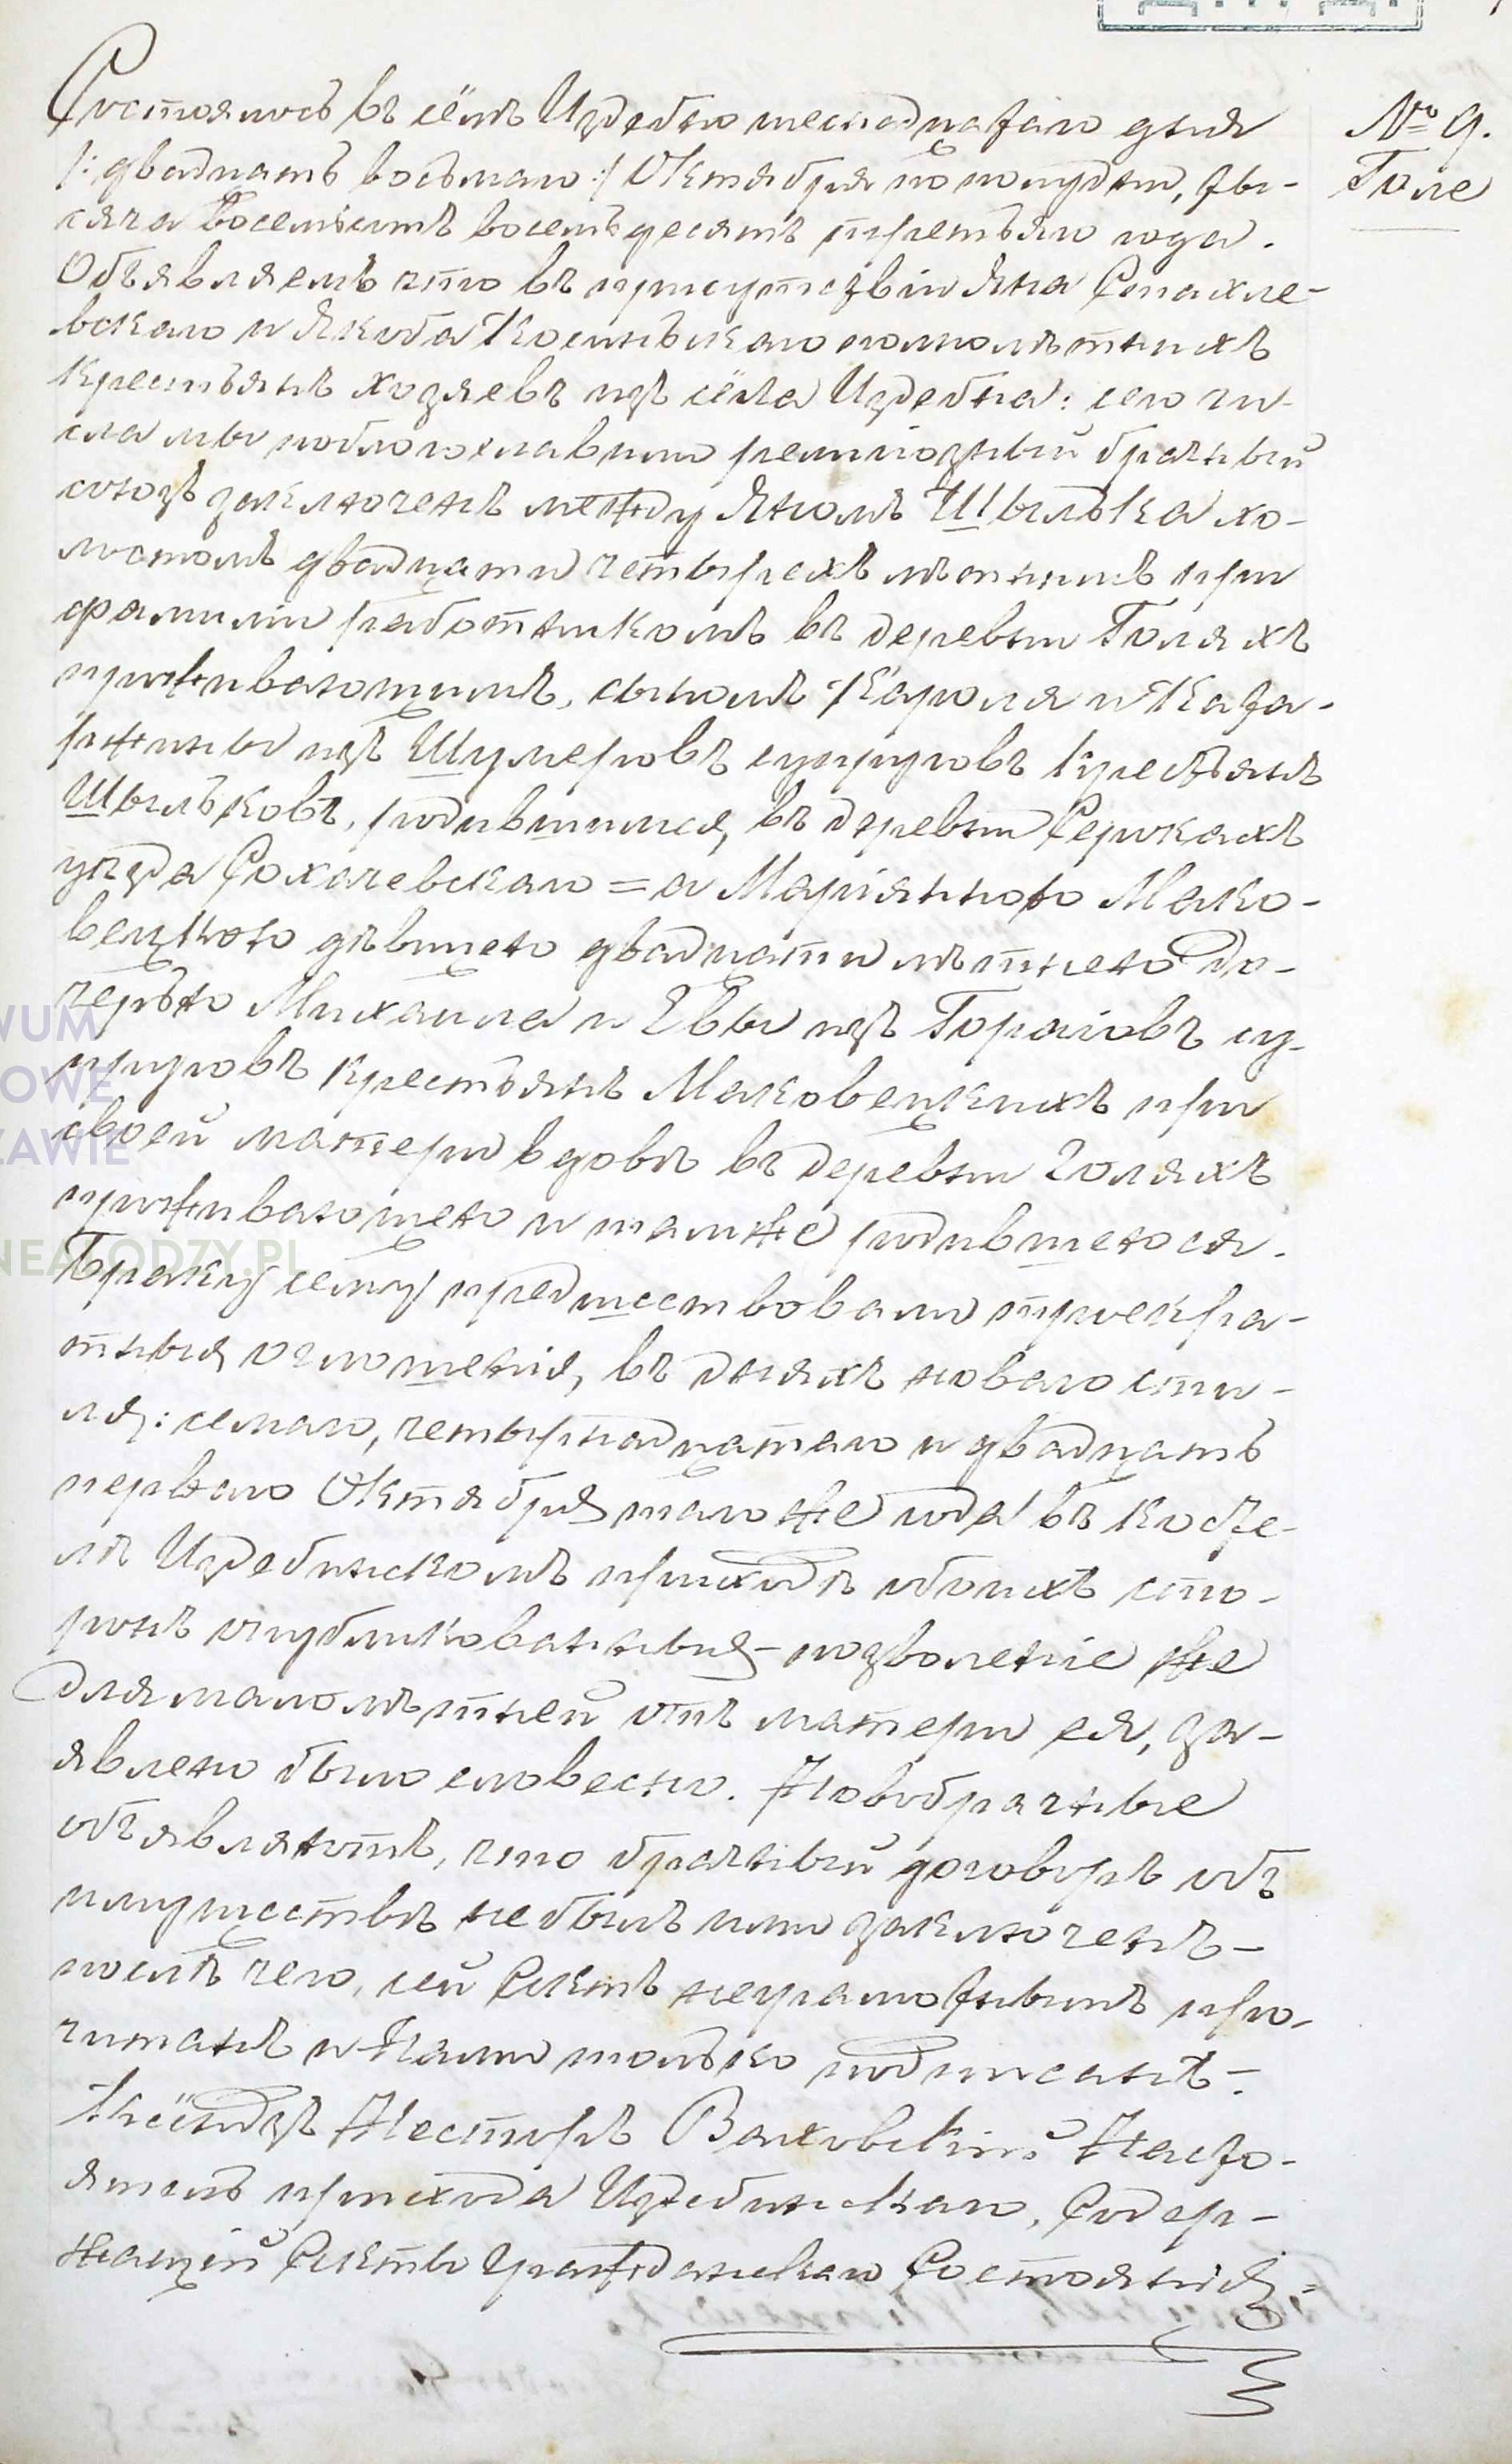 № 9.
Голе
Состоялось въ сёлѣ Издебно шеснадцатаго дня
/: двадцать восьмаго :/ Октября по полудни, ты-
сяча восемьсотъ восемьдесятъ третьяго года.
Объявляемъ что въ присутствіи Яна Стахле-
вскаго и Якуба Косиньскаго полнолѣтнихъ
крестьянъ хозяевъ изъ сёла Издебна: сего чи-
сла мы поблогославили религіозный брачный
союзъ заключенъ между Яномъ Шылька хо-
лостомъ двадцати четырехъ лѣтнимъ при
фамиліи работникомъ въ деревни Голяхъ
проживающимъ, сыномъ Кароля и Ката-
ржины изъ Шулеровъ супруговъ крестьянъ
Шыльковъ, родившимся, въ деревни Серокахъ
уѣзда Сохачевскаго = а Маріянною Мако-
вецкою дѣвицею двадцати лѣтнею до-
черью Михаила и Евы изъ Гораіовъ су-
пруговъ крестьянъ Маковецкихъ при
своей матери вдовѣ въ деревни Голяхъ
проживающею и тамже родившеюся.
Браку сему предшествовали троекра-
тныя оглошенія, въ дняхъ новаго сти-
ля: семаго, четырнадцатаго и двадцать
перваго Октября тогоже года въ косте-
лѣ Издебнскомъ приходѣ обоихъ сто-
ронъ опубликованныя – позволеніе же
для малолѣтней отъ матери ея, за-
явлено было словесно. Новобрачные
объявляютъ, что брачный договоръ объ
имуществѣ не былъ ими заключенъ –
послѣ чего, сей Актъ неграмотнымъ про-
читанъ и Нами только подписанъ –.
Ксёндзъ Несторъ Ваховскій Насто-
ятель прихода Издебнскаго, Содер-
жащій Акты Гражданскаго Состоянія =